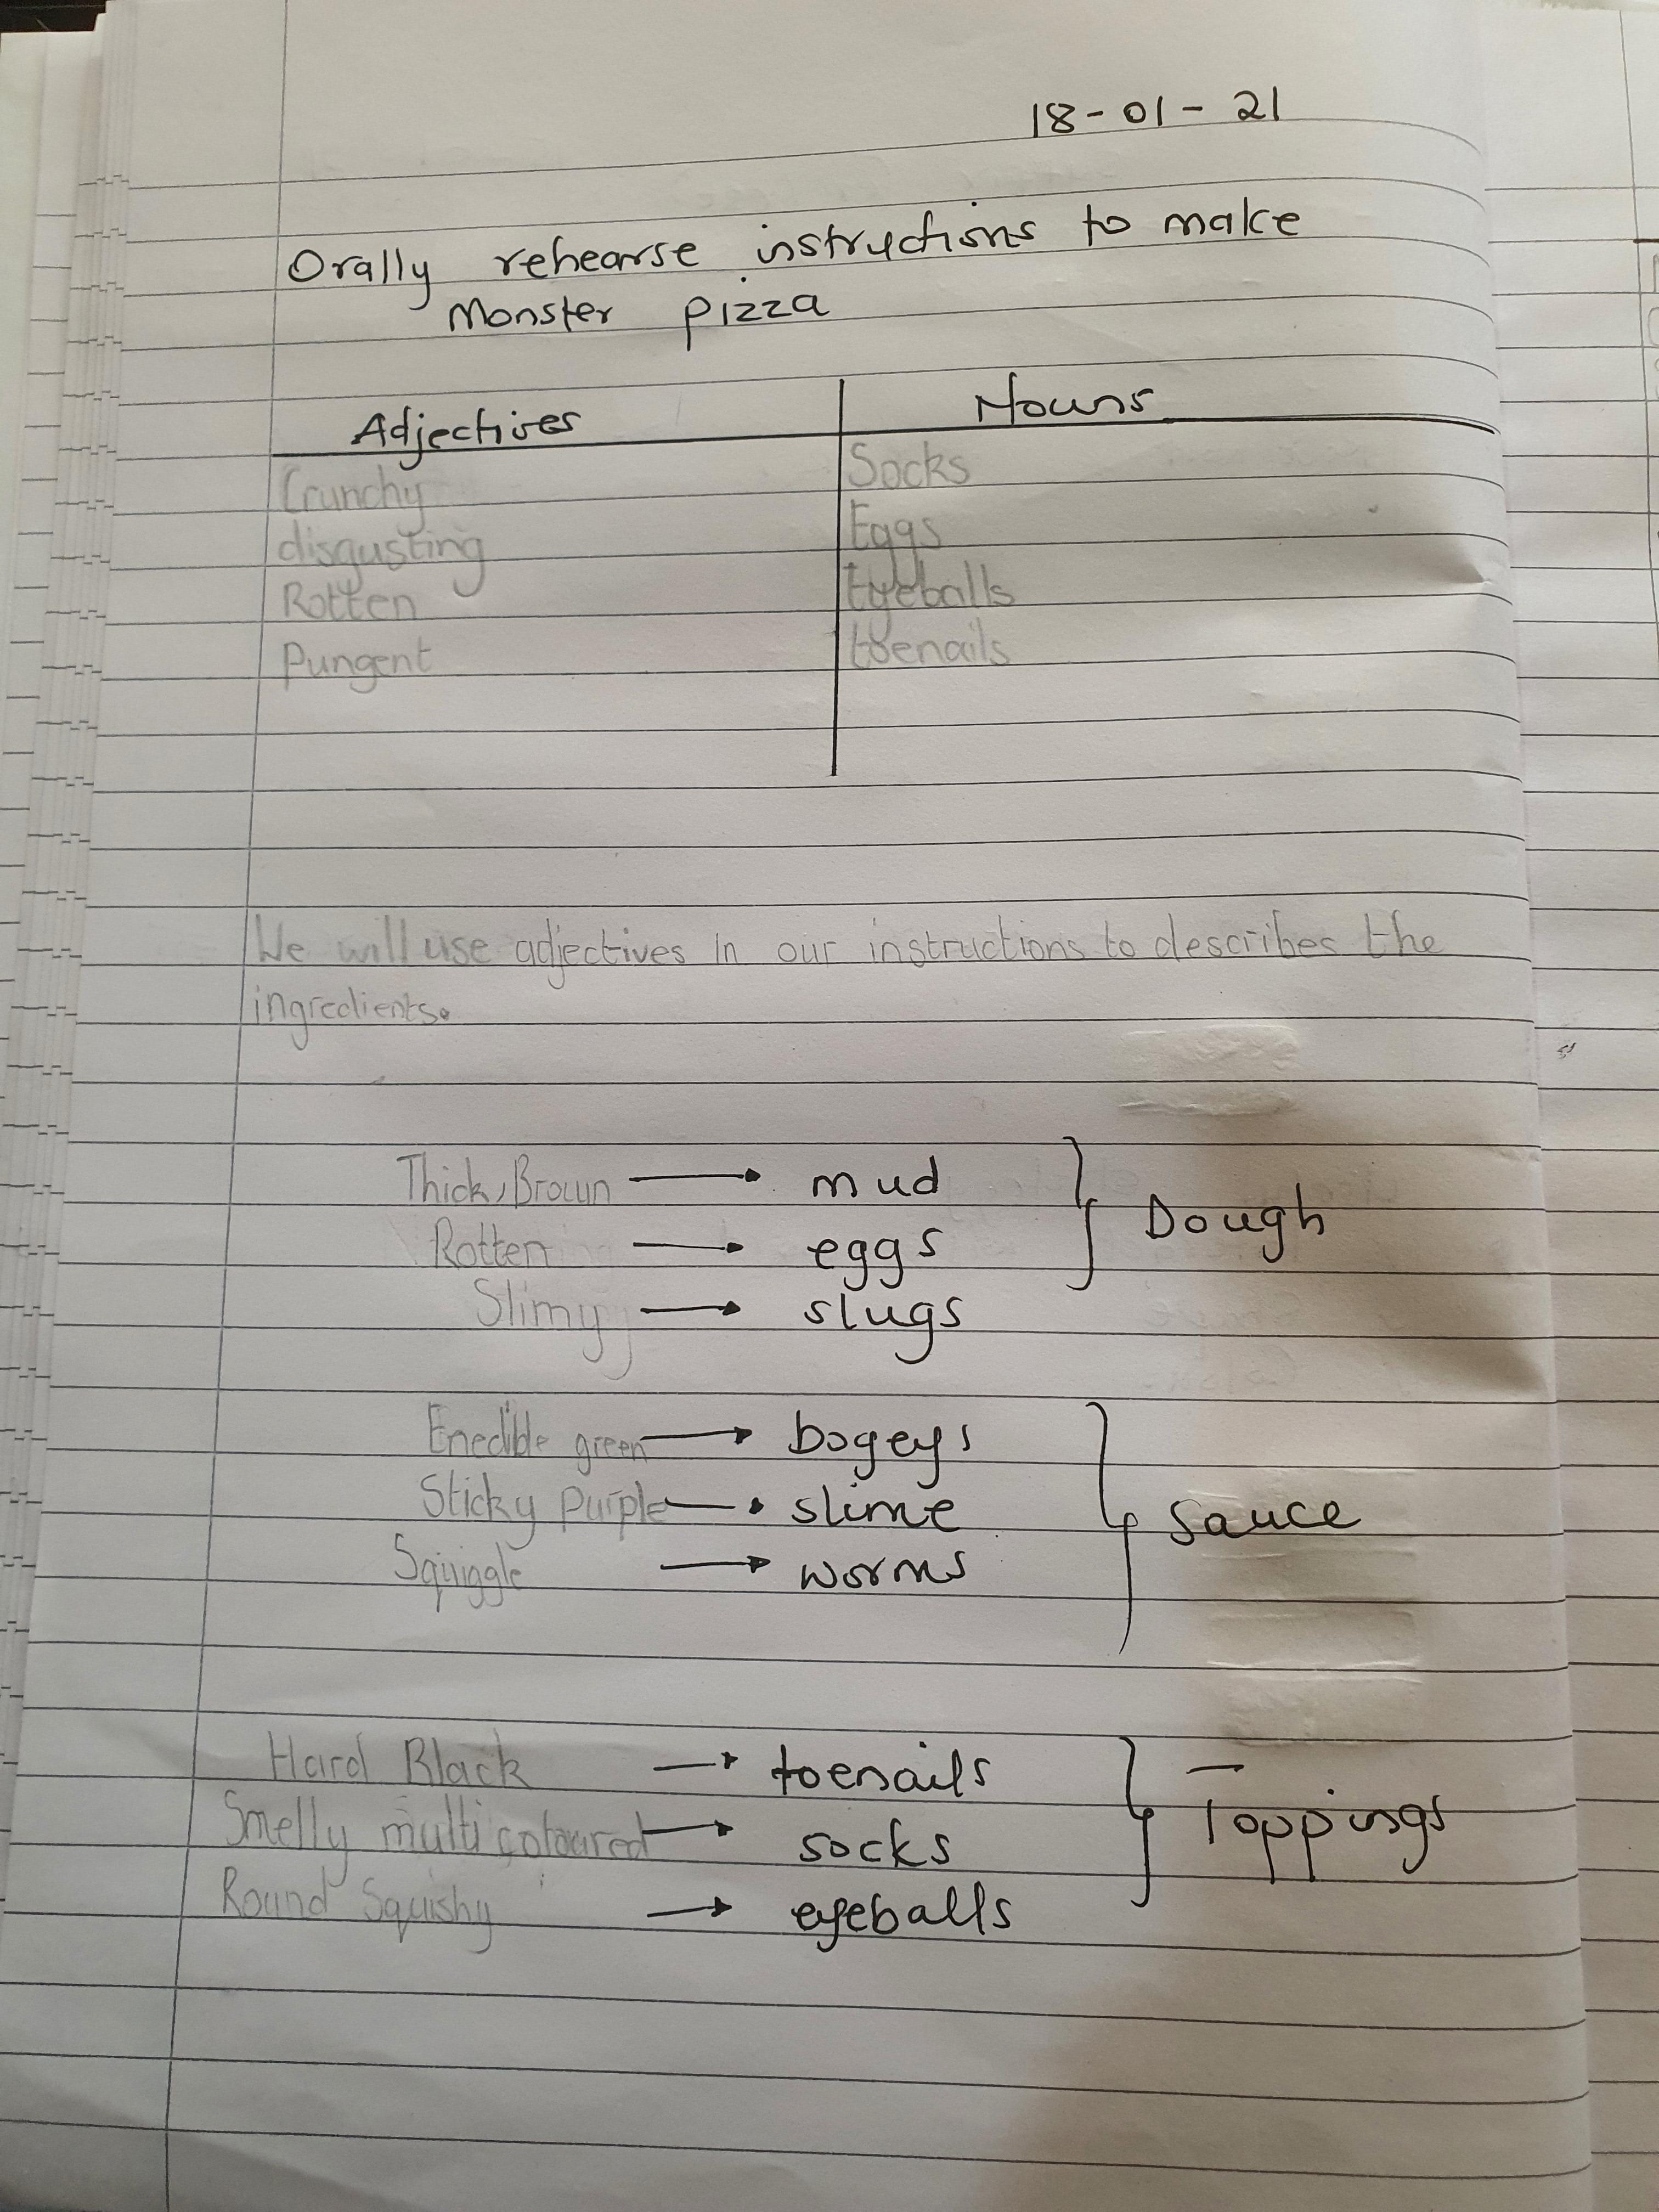 18-01-21
Orally rehearse instructions to make
Monster pizza
Adjectives Nouns
Crunchy Socks
disgusting Eggs
Rotten Eyeballs
Pungent toenails
We will use adjectives in our instructions to describes the
ingredients.
Thick, Brown → mud
Dough
Rotten → eggs
Slimy → slugs
Enedible green → bogeys
Sticky Purple → slime
Sauce
Squiggle → worms
Hard Black → toenails
Smelly multi coloured → socks
Toppings
Round Squishy → eyeballs